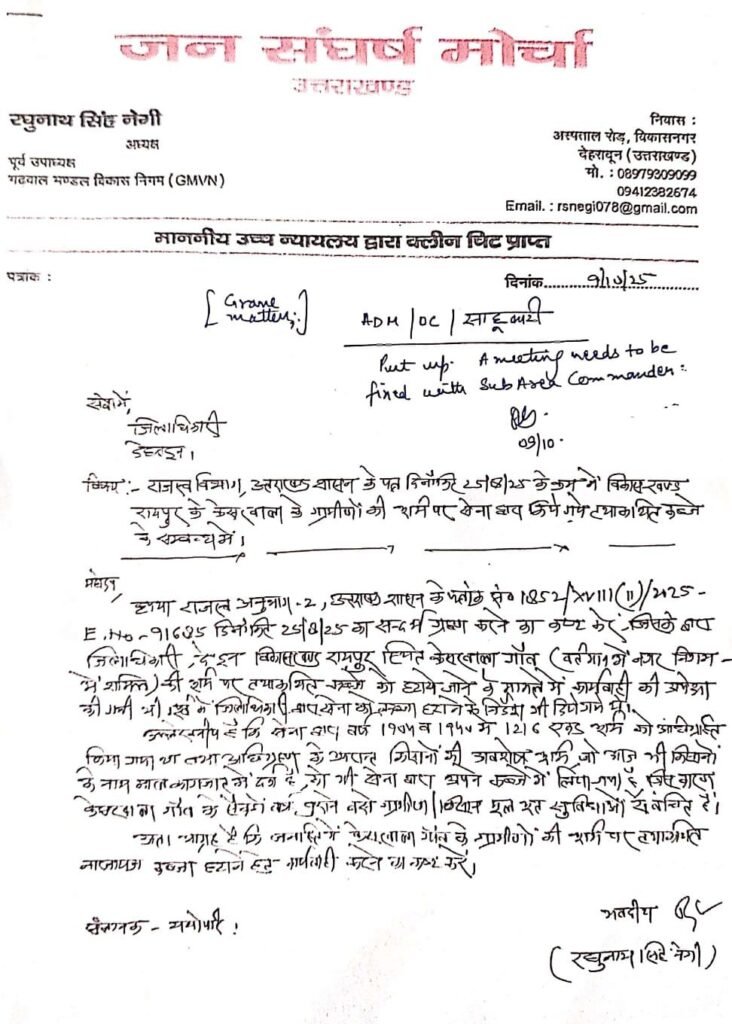 जन संघर्ष मोर्चा
उत्तराखण्ड
रघुनाथ सिंह नेगी
अध्यक्ष
पूर्व उपाध्यक्ष
गढवाल मण्डल विकास निगम (GMVN)
निवास :
अस्पताल रोड़, विकासनगर
देहरादून (उत्तराखण्ड)
मो. : 08979309099
09412382674
Email. : rsnegi078@gmail.com
माननीय उच्च न्यायलय द्वारा क्लीन चिट प्राप्त
पत्रांक :
दिनांक.......... 9/10/25
ADM / OC /
Put up. A meeting needs to be
fixed with Sub Area Commander.
09/10.
सेवा में,
जिलाधिकारी
देहरादून।
विषय:- राजस्व विभाग, उत्तराखण्ड शासन के पत्र दिनांकित 25/8/25 के क्रम में विकासखण्ड
रायपुर के केसरवाला के ग्रामीणों की भूमि पर सेना द्वारा किये गये तथाकथित कब्जे
के सम्बन्ध में।
महोदय,
कृपया राजस्व अनुभाग-2, उत्तराखण्ड शासन के पत्रांक सं० 1852/XVIII(II)/2025-
E.No-91635 दिनांकित 25/8/25 का सन्दर्भ ग्रहण करने का कष्ट करें, जिसके द्वारा
जिलाधिकारी, देहरादून विकासखण्ड रायपुर स्थित केसरवाला गाँव (वर्तमान में नगर निगम
में शामिल) की भूमि पर तथाकथित कब्जे को हटाये जाने के मामले में कार्यवाही की अपेक्षा
की गयी थी जिलाधिकारी द्वारा सेना को कब्जा हटाने के निर्देश भी दिये गये थे।
उल्लेखनीय है कि सेना द्वारा वर्ष व १९५० में 1216 एकड़ भूमि को अधिग्रहित
किया गया था तथा अधिग्रहण के उपरान्त किसानों की अवशेष भूमि, जो आज भी किसानों
के नाम माल कागजात में दर्ज है, को भी सेना द्वारा अपने कब्जे में लिया गया है, जिस कारण
केसरवाला गाँव के सैकड़ों वर्ष पुराने बसे ग्रामीण/किसान मूलभूत सुविधाओं से वंचित हैं।
अतः आग्रह है कि जनहित में केसरवाला गाँव के ग्रामीणों की भूमि पर तथाकथित
नाजायज कब्जा हटाने हेतु कार्यवाही करने का कष्ट करें।
संलग्नक - यथोपरि।
भवदीय
(रघुनाथ सिंह नेगी)